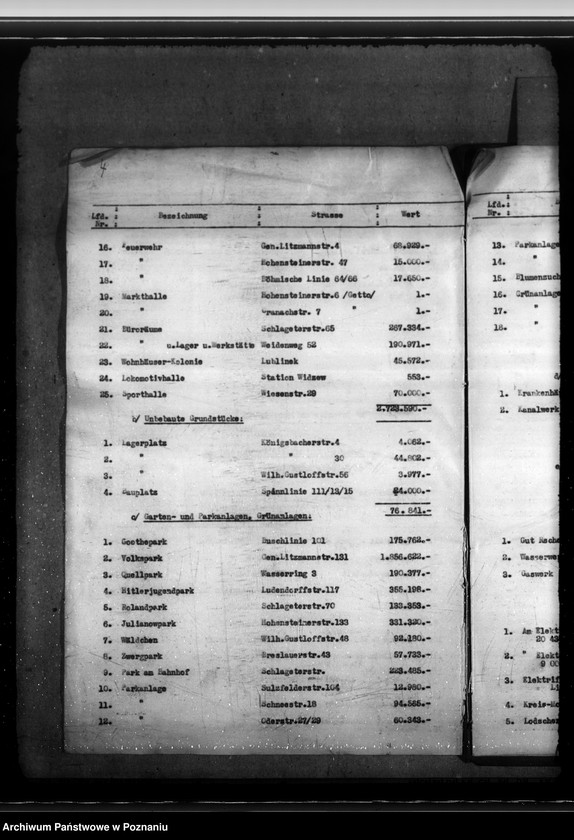 4
Lfd. Nr. : Bezeichnung : Strasse : Wert
16. Feuerwehr Gen.Litzmannstr.4 68.929.-
17. " Hohensteinerstr. 47 15.000.-
18. " Böhmische Linie 64/66 17.650.-
19. Markthalle Hohensteinerstr.6 /Getto/ 1.-
20. " Cranachstr. 7 " 1.-
21. Büroräume Schlageterstr.65 267.334.-
22. " u.Lager u.Werkstätte Weidenweg 52 190.971.-
23. Wohnhäuser-Kolonie Lublinek 45.572.-
24. Lokomotivhalle Station Widzew 553.-
25. Sporthalle Wiesenstr.29 70.000.-
2.723.590.-
b/ Unbebaute Grundstücke:
1. Lagerplatz Königsbacherstr.4 4.062.-
2. " " 30 44.802.-
3. " Wilh.Gustloffstr.56 3.977.-
4. Bauplatz Spinnlinie 111/13/15 24.000.-
76.841.-
c/ Garten- und Parkanlagen, Grünanlagen:
1. Goethepark Buschlinie 101 175.762.-
2. Volkspark Gen.Litzmannstr.131 1.856.622.-
3. Quellpark Wasserring 3 190.377.-
4. Hitlerjugendpark Ludendorffstr.117 355.198.-
5. Rolandpark Schlageterstr.70 133.353.-
6. Julianowpark Hohensteinerstr.133 331.320.-
7. Wäldchen Wilh.Gustloffstr.48 92.180.-
8. Zwergpark Breslauerstr.43 57.733.-
9. Park am Bahnhof Schlageterstr. 223.485.-
10. Parkanlage Sulzfelderstr.104 12.980.-
11. " Schneestr.18 94.565.-
12. " Oderstr.27/29 60.343.-
Lfd. Nr. :
13. Parkanlage
14. "
15. Blumenzuch
16. Grünanlage
17. "
18. "
1. Krankenhä
2. Kanalwerk
1. Gut
2. Wasserwer
3. Gaswerk
1. Am Elekt
2. " Elekt
3. Elektrif
4. Kreis-
5. Lodscher
Archiwum Państwowe w Poznaniu